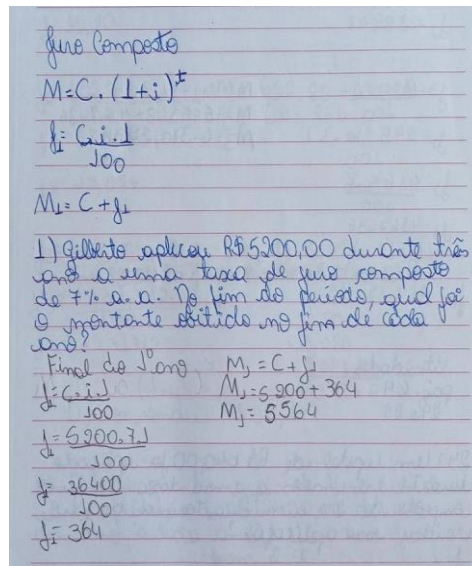 Juro Composto
M=C.(1+i)^t
J1=C.i.1
100
M1=C+J1
1) Gilberto aplicou R$5200,00 durante três
anos a uma taxa de juro composto
de 7% a.a. No fim do período, qual foi
o montante obitido no fim de cada
ano?
Final do 1º ano M1=C+J1
J1=C.i.1 M1=5200+364
100 M1=5564
J1=5200.7.1
100
J1=36400
100
J1=364